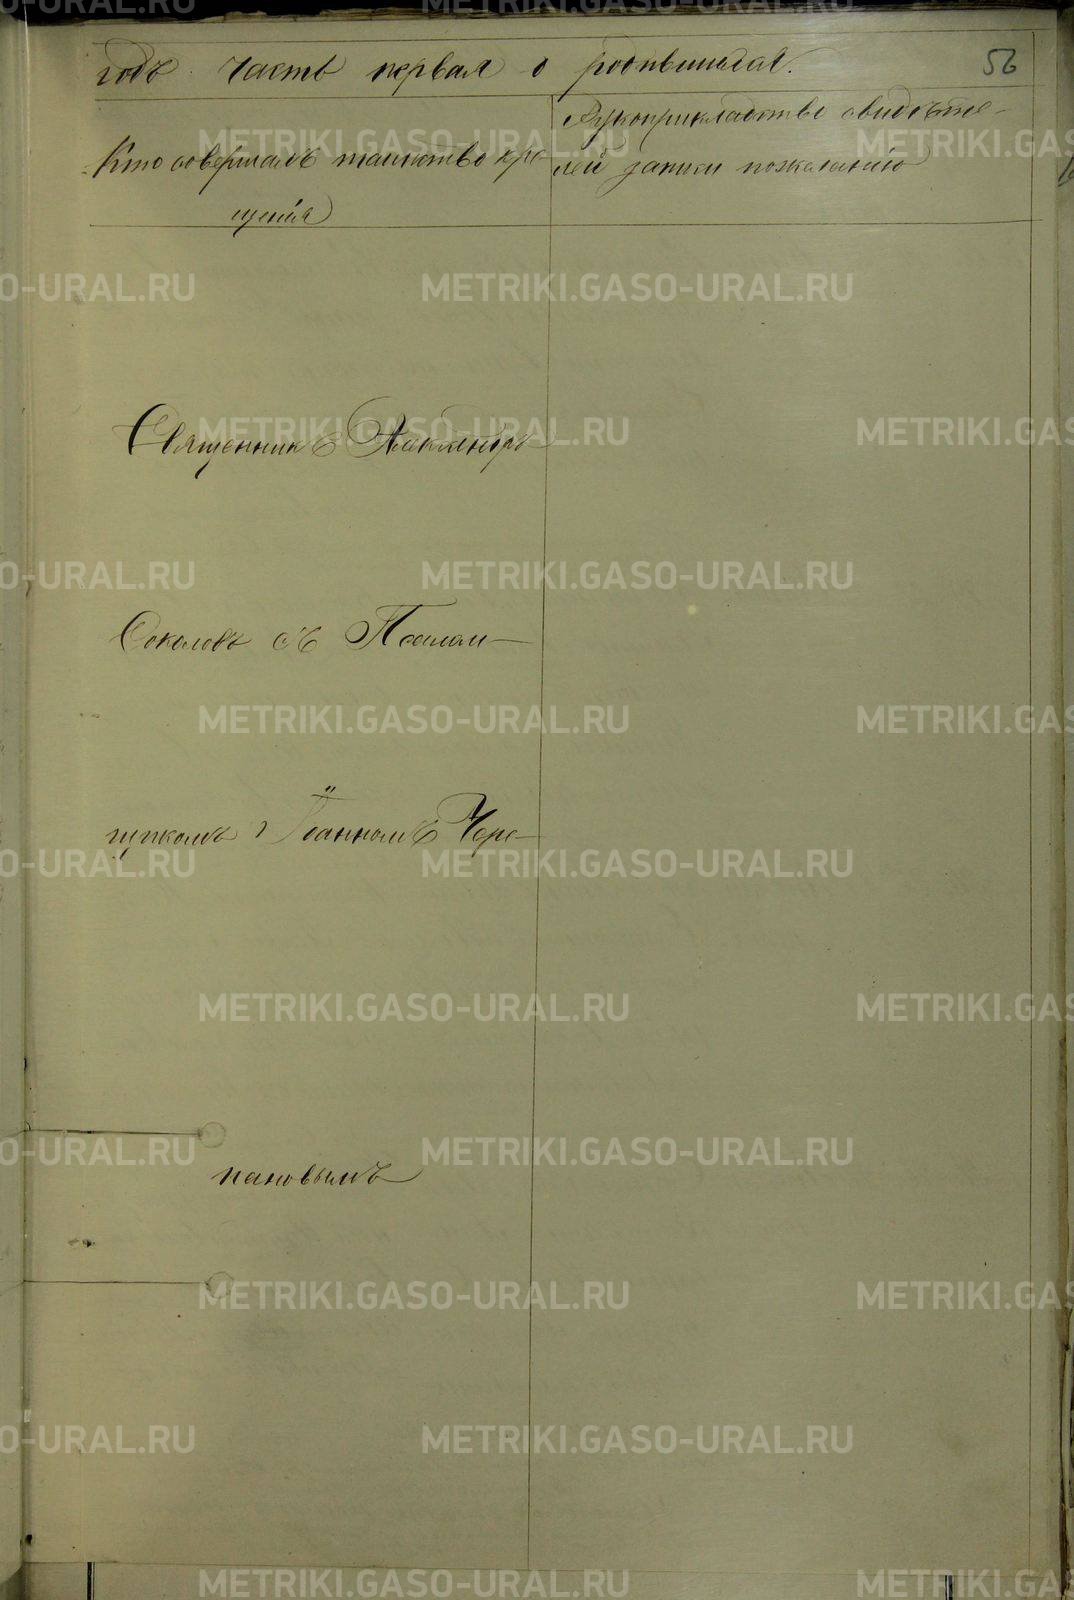 годъ часть первая о родившихся.
56
Кто совершалъ таинство кре
щенія
Рукоприкладство свидѣте-
лей записи по желанію
Священникъ Александръ
Соколовъ съ Псалом-
щикомъ Іоанномъ Чере-
пановымъ
METRIKI.GASO-URAL.RU